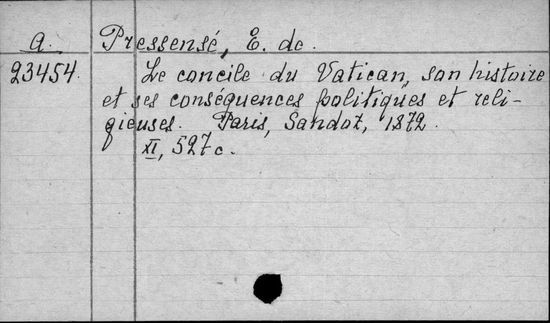 a. Pressensé, E. de.
23454. Le concile du Vatican, son histoire
et ses conséquences politiques et reli-
gieuses. Paris, Sandoz, 1872.
XI, 527 c.